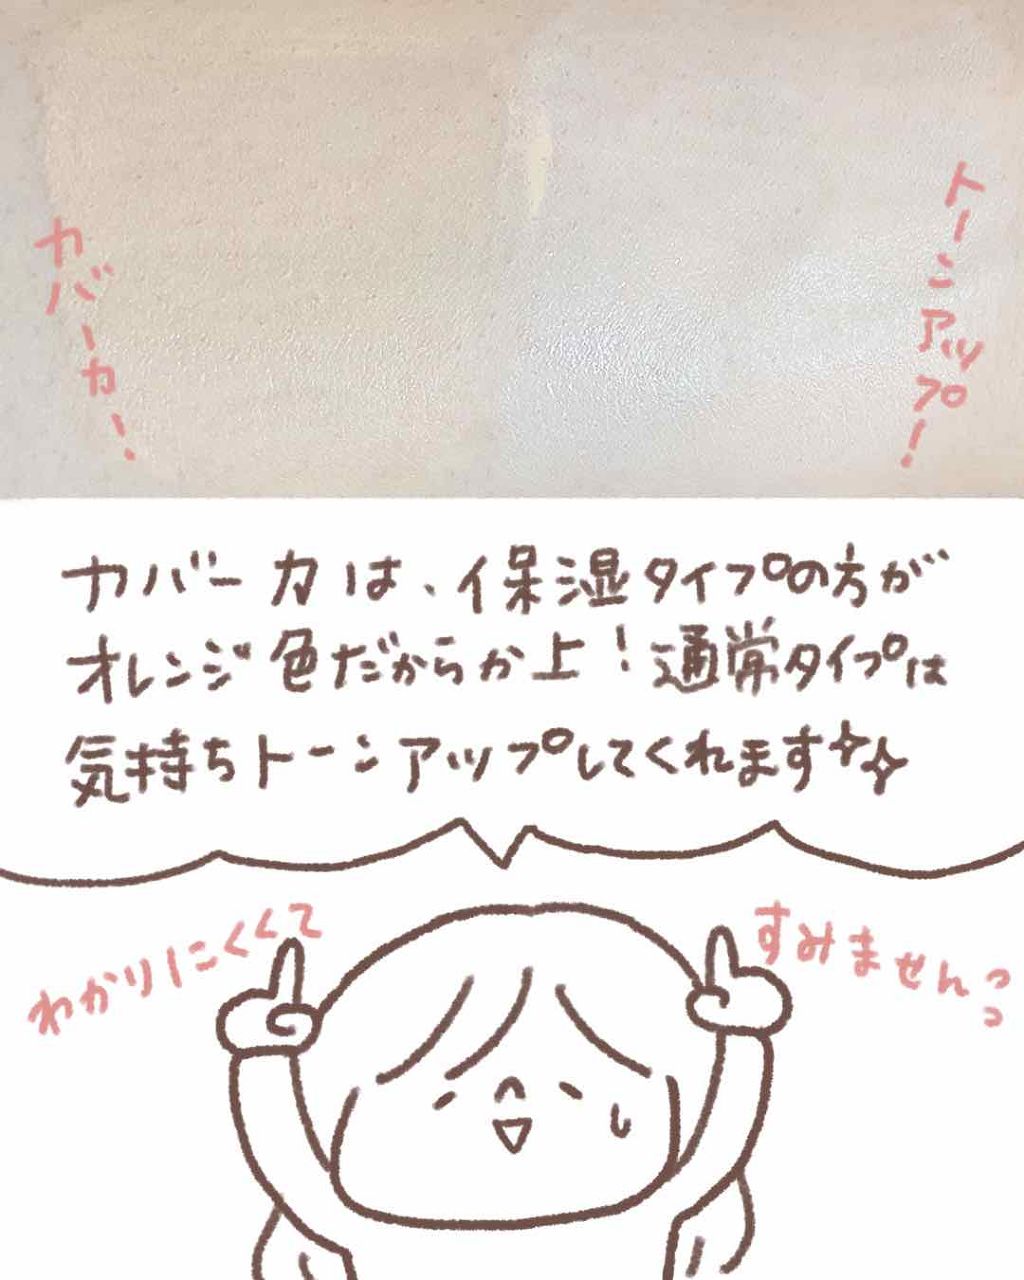 カバー力！
トーンアップ！
カバー力は、保湿タイプの方が
オレンジ色だからか上！通常タイプは
気持ちトーンアップしてくれます✨
わかりにくくて
すみませんっっ